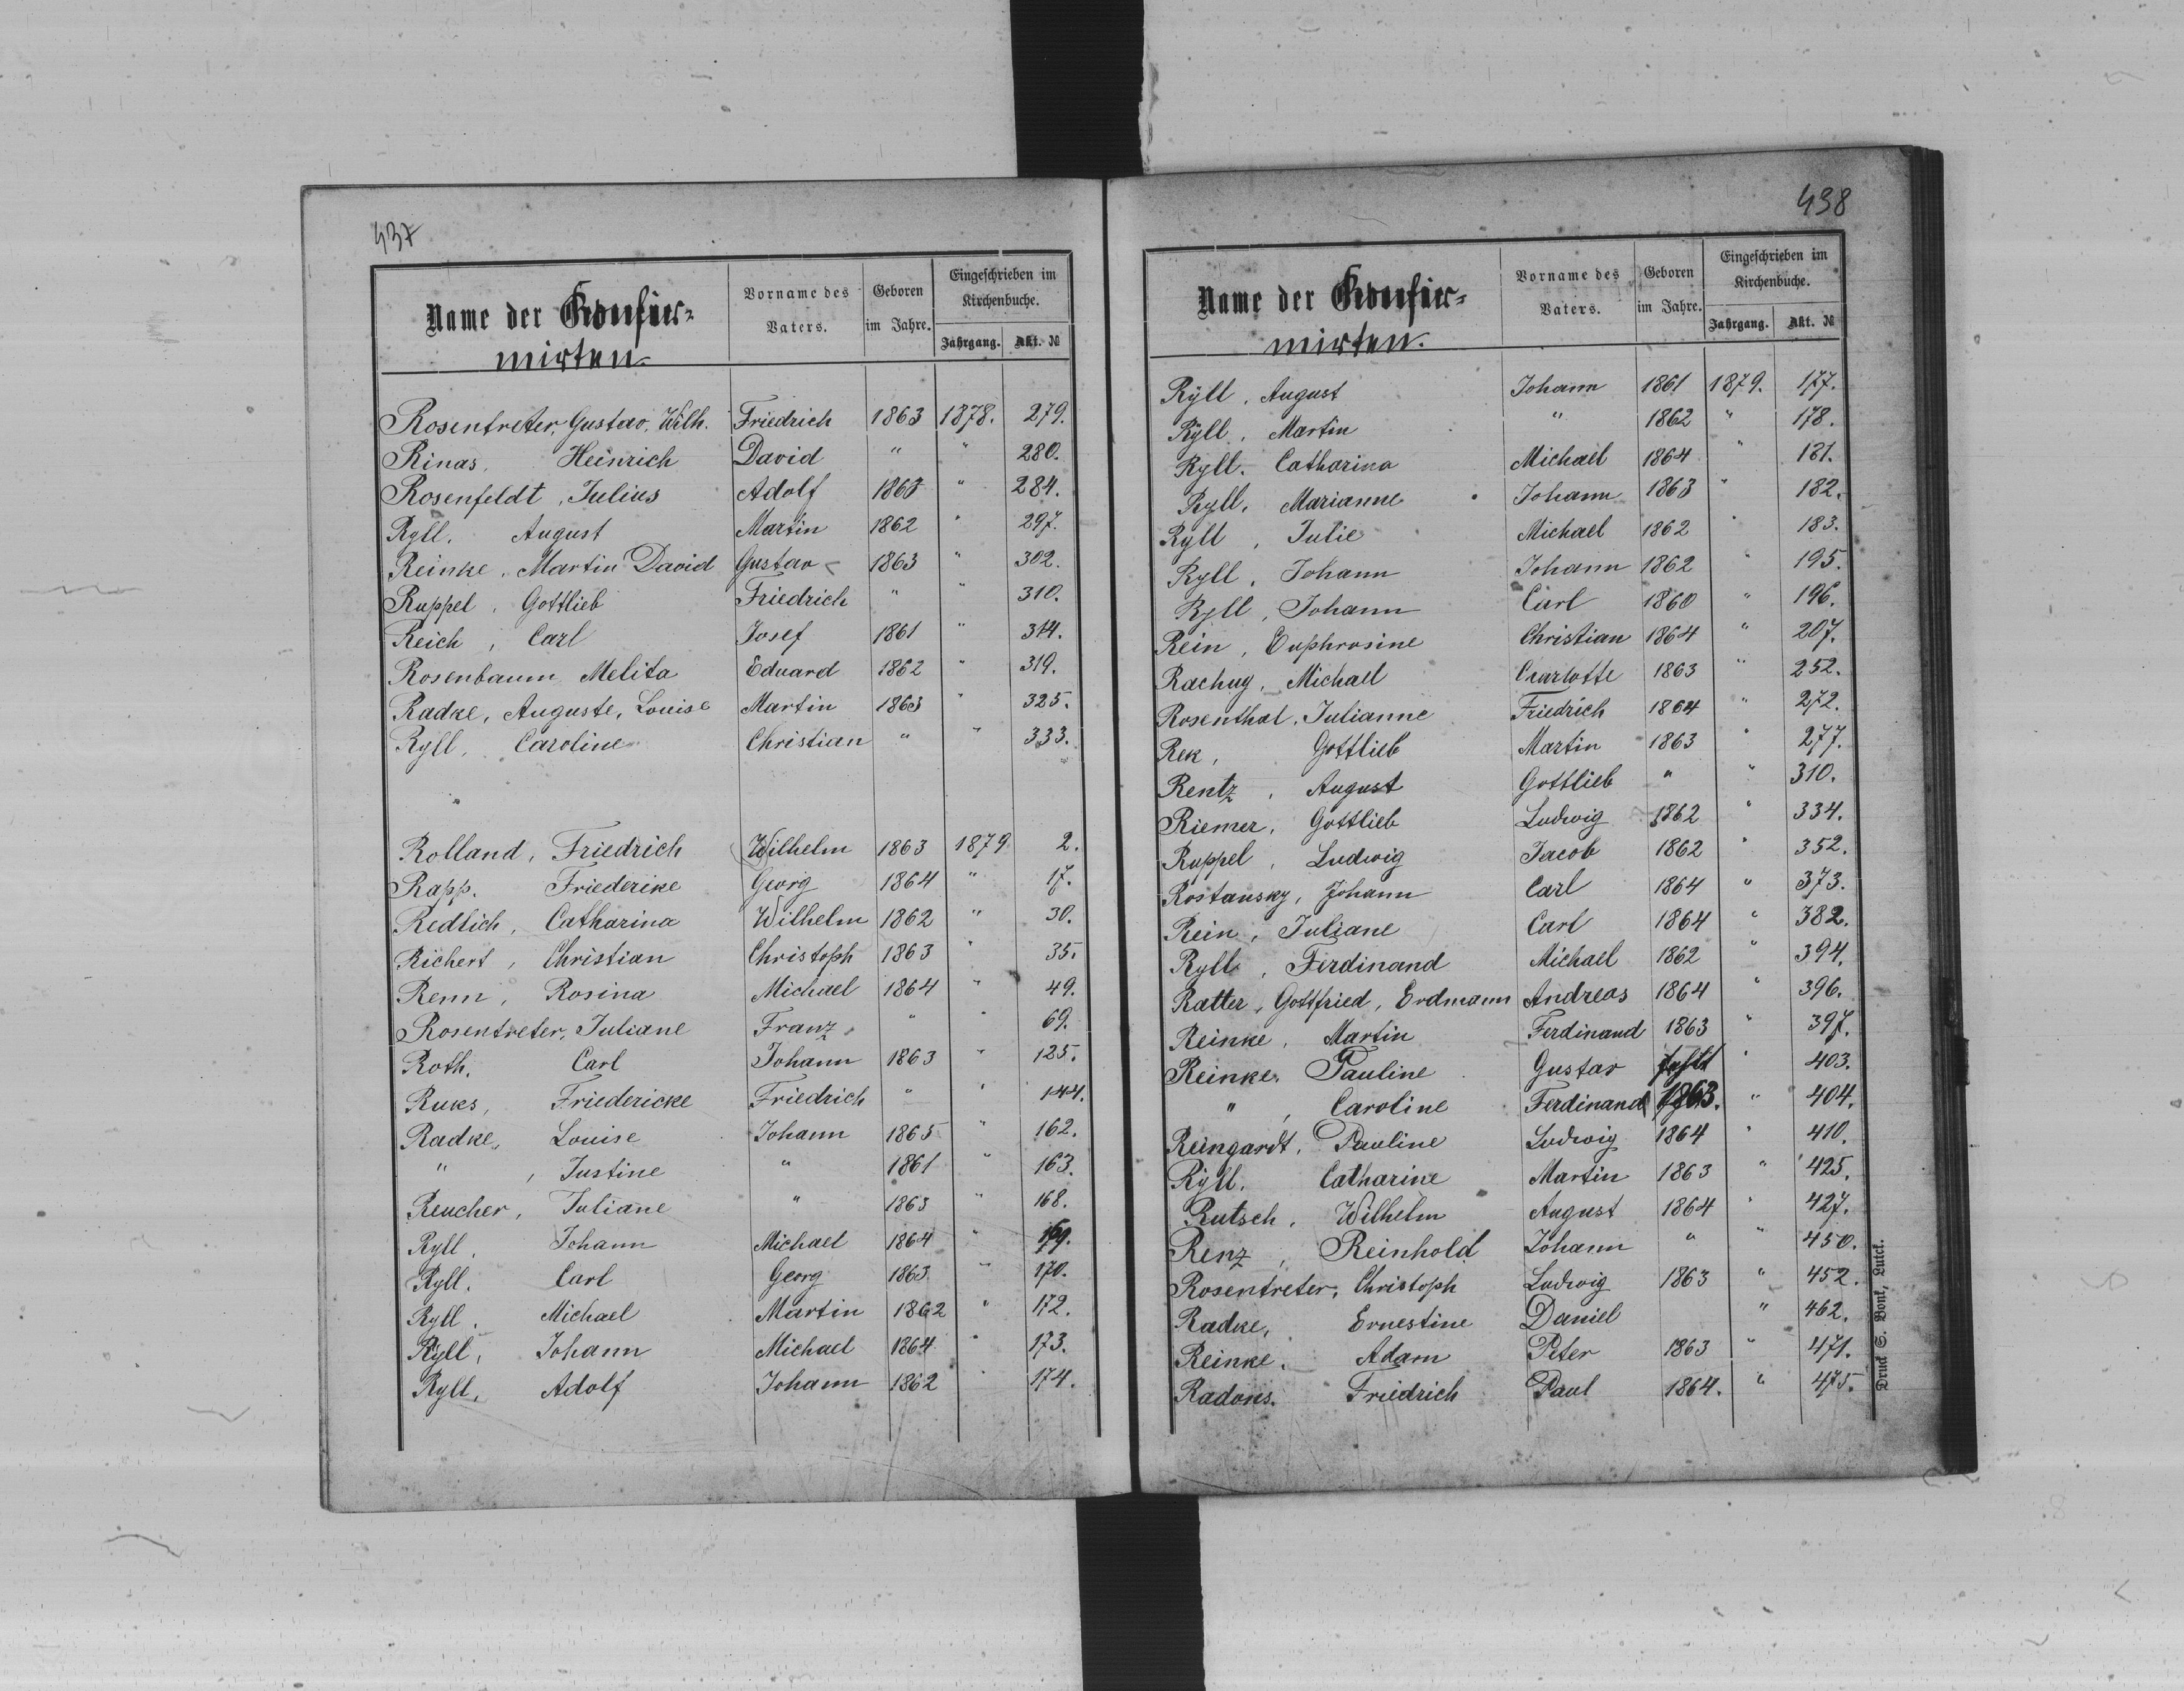 437
Name der Konfir-
mirten.
Vorname des
Vaters.
Geboren
im Jahre.
Eingeschrieben im
Kirchenbuche.
Jahrgang. Akt. №
Rosentreter, Gustav, Wilh. Friedrich 1863 1878. 279.
Rinas, Heinrich David " " 280.
Rosenfeldt, Julius Adolf 1863 " 284.
Ryll, August Martin 1862 " 297.
Reinke, Martin David Gustav 1863 " 302.
Ruppel, Gottlieb Friedrich " " 310.
Reich, Carl Josef 1861 " 314.
Rosenbaum Melita Eduard 1862 " 319.
Radke, Auguste, Louise Martin 1863 " 325.
Ryll, Caroline Christian " " 333.
Rolland, Friedrich Wilhelm 1863 1879 2.
Rapp. Friederike Georg 1864 " 17.
Redlich, Catharina Wilhelm 1862 " 30.
Richert, Christian Christoph 1863 " 35.
Renn, Rosina Michael 1864 " 49.
Rosentreter, Juliane Franz " " 69.
Roth, Carl Johann 1863 " 125.
Ruks, Friedericke Friedrich " " 144.
Radke, Louise Johann 1865 " 162.
" , Justine " 1861 " 163.
Reucher, Juliane " 1863 " 168.
Ryll, Johann Michael 1864 " 169.
Ryll, Carl Georg 1863 " 170.
Ryll, Michael Martin 1862 " 172.
Ryll, Johann Michael 1864 " 173.
Ryll, Adolf Johann 1862 " 174.
438
Name der Konfir-
mirten.
Vorname des
Vaters.
Geboren
im Jahre.
Eingeschrieben im
Kirchenbuche.
Jahrgang. Akt. №
Ryll, August Johann 1861 1879. 177.
Ryll, Martin " 1862 " 178.
Ryll, Catharina Michael 1864 " 181.
Ryll, Marianne Johann 1863 " 182.
Ryll, Julie Michael 1862 " 183.
Ryll, Johann Johann 1862 " 195.
Ryll, Johann Carl 1860 " 196.
Rein, Euphrosine Christian 1864 " 207.
Rachuy, Michael Charlotte 1863 " 252.
Rosenthal, Julianne Friedrich 1864 " 272.
Rek, Gottlieb Martin 1863 " 277.
Rentz, August Gottlieb " " 310.
Riemer, Gottlieb Ludwig 1862 " 334.
Ruppel, Ludwig Jacob 1862 " 352.
Rostansky, Johann Carl 1864 " 373.
Rein, Juliane Carl 1864 " 382.
Ryll, Ferdinand Michael 1862 " 394.
Ratter, Gottfried, Erdmann Andreas 1864 " 396.
Reinke, Martin Ferdinand 1863 " 397.
Reinke, Pauline Gustav fehlt " 403.
" , Caroline Ferdinand 1863. " 404.
Reingardt, Pauline Ludwig 1864 " 410.
Ryll, Catharine Martin 1863 " 425.
Rutsch, Wilhelm August 1864 " 427.
Renz, Reinhold Johann " " 450.
Rosentreter, Christoph Ludwig 1863 " 452.
Radke, Ernestine Daniel " 462.
Reinke, Adam Peter 1863 " 471.
Radons. Friedrich Paul 1864. " 475.
Druck S. Bont, Lutck.